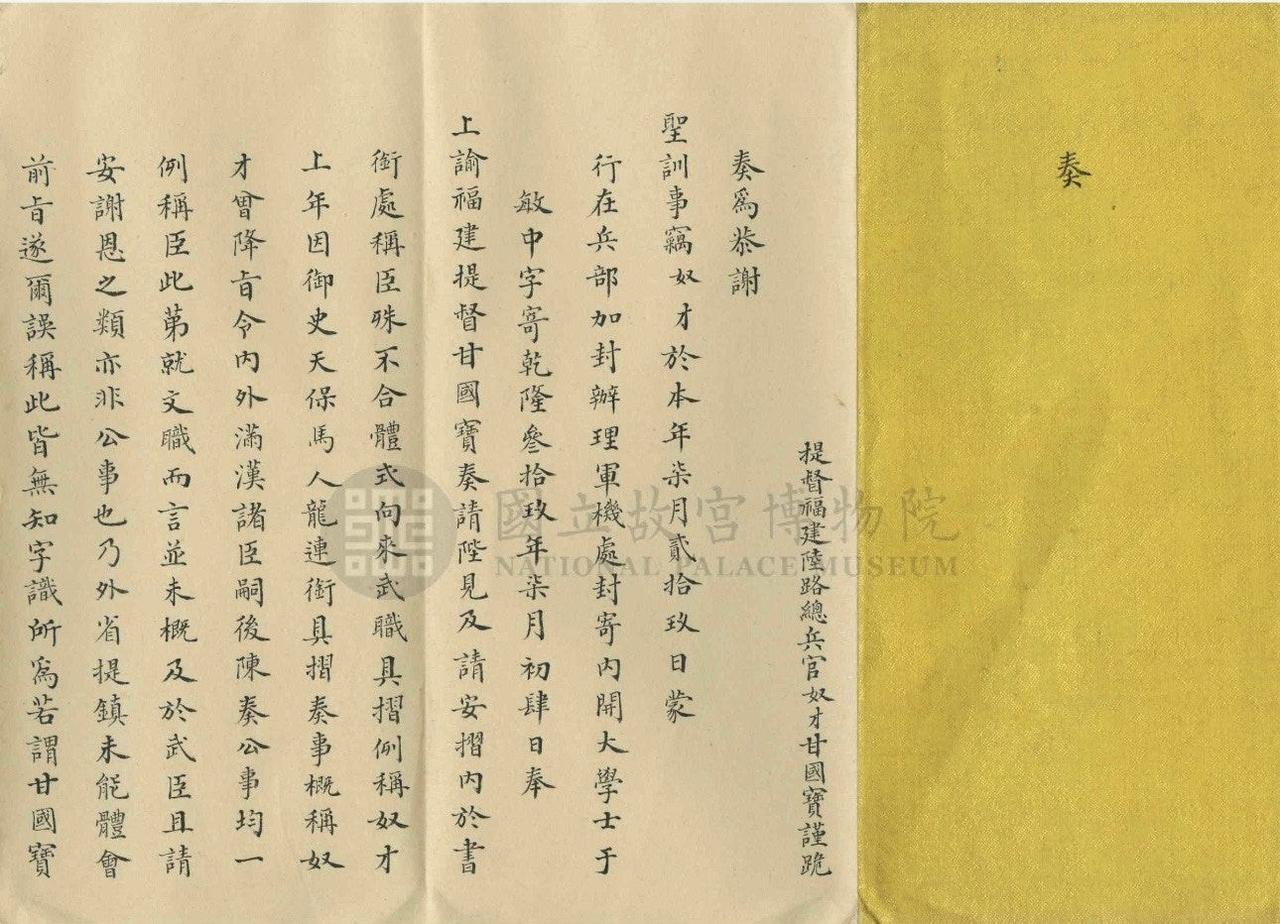 奏
提督福建陸路總兵官奴才甘國寶謹跪
奏爲恭謝
聖訓事竊奴才於本年柒月貳拾玖日蒙
行在兵部加封辦理軍機處封寄內開大學士于
敏中字寄乾隆叁拾玖年柒月初肆日奉
上諭福建提督甘國寶奏請陛見及請安摺內於書
銜處稱臣殊不合體式向來武職具摺例稱奴才
上年因御史天保馬人龍連銜具摺奏事概稱奴
才曾降旨令內外滿漢諸臣嗣後陳奏公事均一
例稱臣此第就文職而言並未概及於武臣且請
安謝恩之類亦非公事也乃外省提鎮未能體會
前旨遂爾誤稱此皆無知字識所爲若謂甘國寶
國立故宮博物院
NATIONAL PALACE MUSEUM